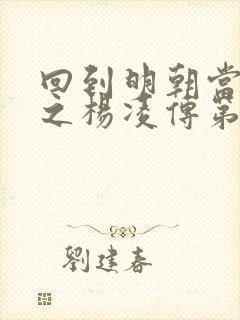 回到明朝當
之楊凌傳第
劉建春